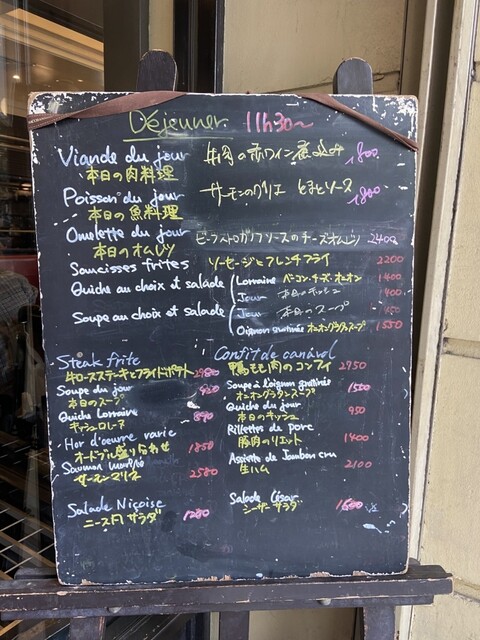 Déjeuner 11h30〜
Viande du jour 牛肉の赤ワイン煮込み 1800
本日の肉料理
Poisson du jour サーモンのグリエ とまとソース 1800
本日の魚料理
Omelette du jour ソースのチーズオムレツ 2400
本日のオムレツ
Saucisses frites ソーセージとフレンチフライ 2200
Quiche au choix et salade Lorraine ベーコン・チーズ・オニオン 1400
Jour 本日のキッシュ 1400
Soupe au choix et salade Jour 本日のスープ
Oignon gratinée オニオングラタンスープ 1550
Steak frite
牛ロースステーキとフライドポテト 2980
Soupe du jour
本日のスープ
Quiche Lorraine
キッシュロレーヌ
Hor d'oeuvre varie
オードブル盛り合わせ 1850
Saumon
サーモンマリネ 2580
Salade Niçoise
ニース風サラダ 1280
Confit de canard
鴨もも肉のコンフィ 2950
Soupe à l'oignon gratinée
オニオングラタンスープ 1500
Quiche du jour
本日のキッシュ 950
Rillettes de porc
豚肉のリエット 1400
Assiette de Jambon cru
生ハム 2100
Salade César
シーザーサラダ